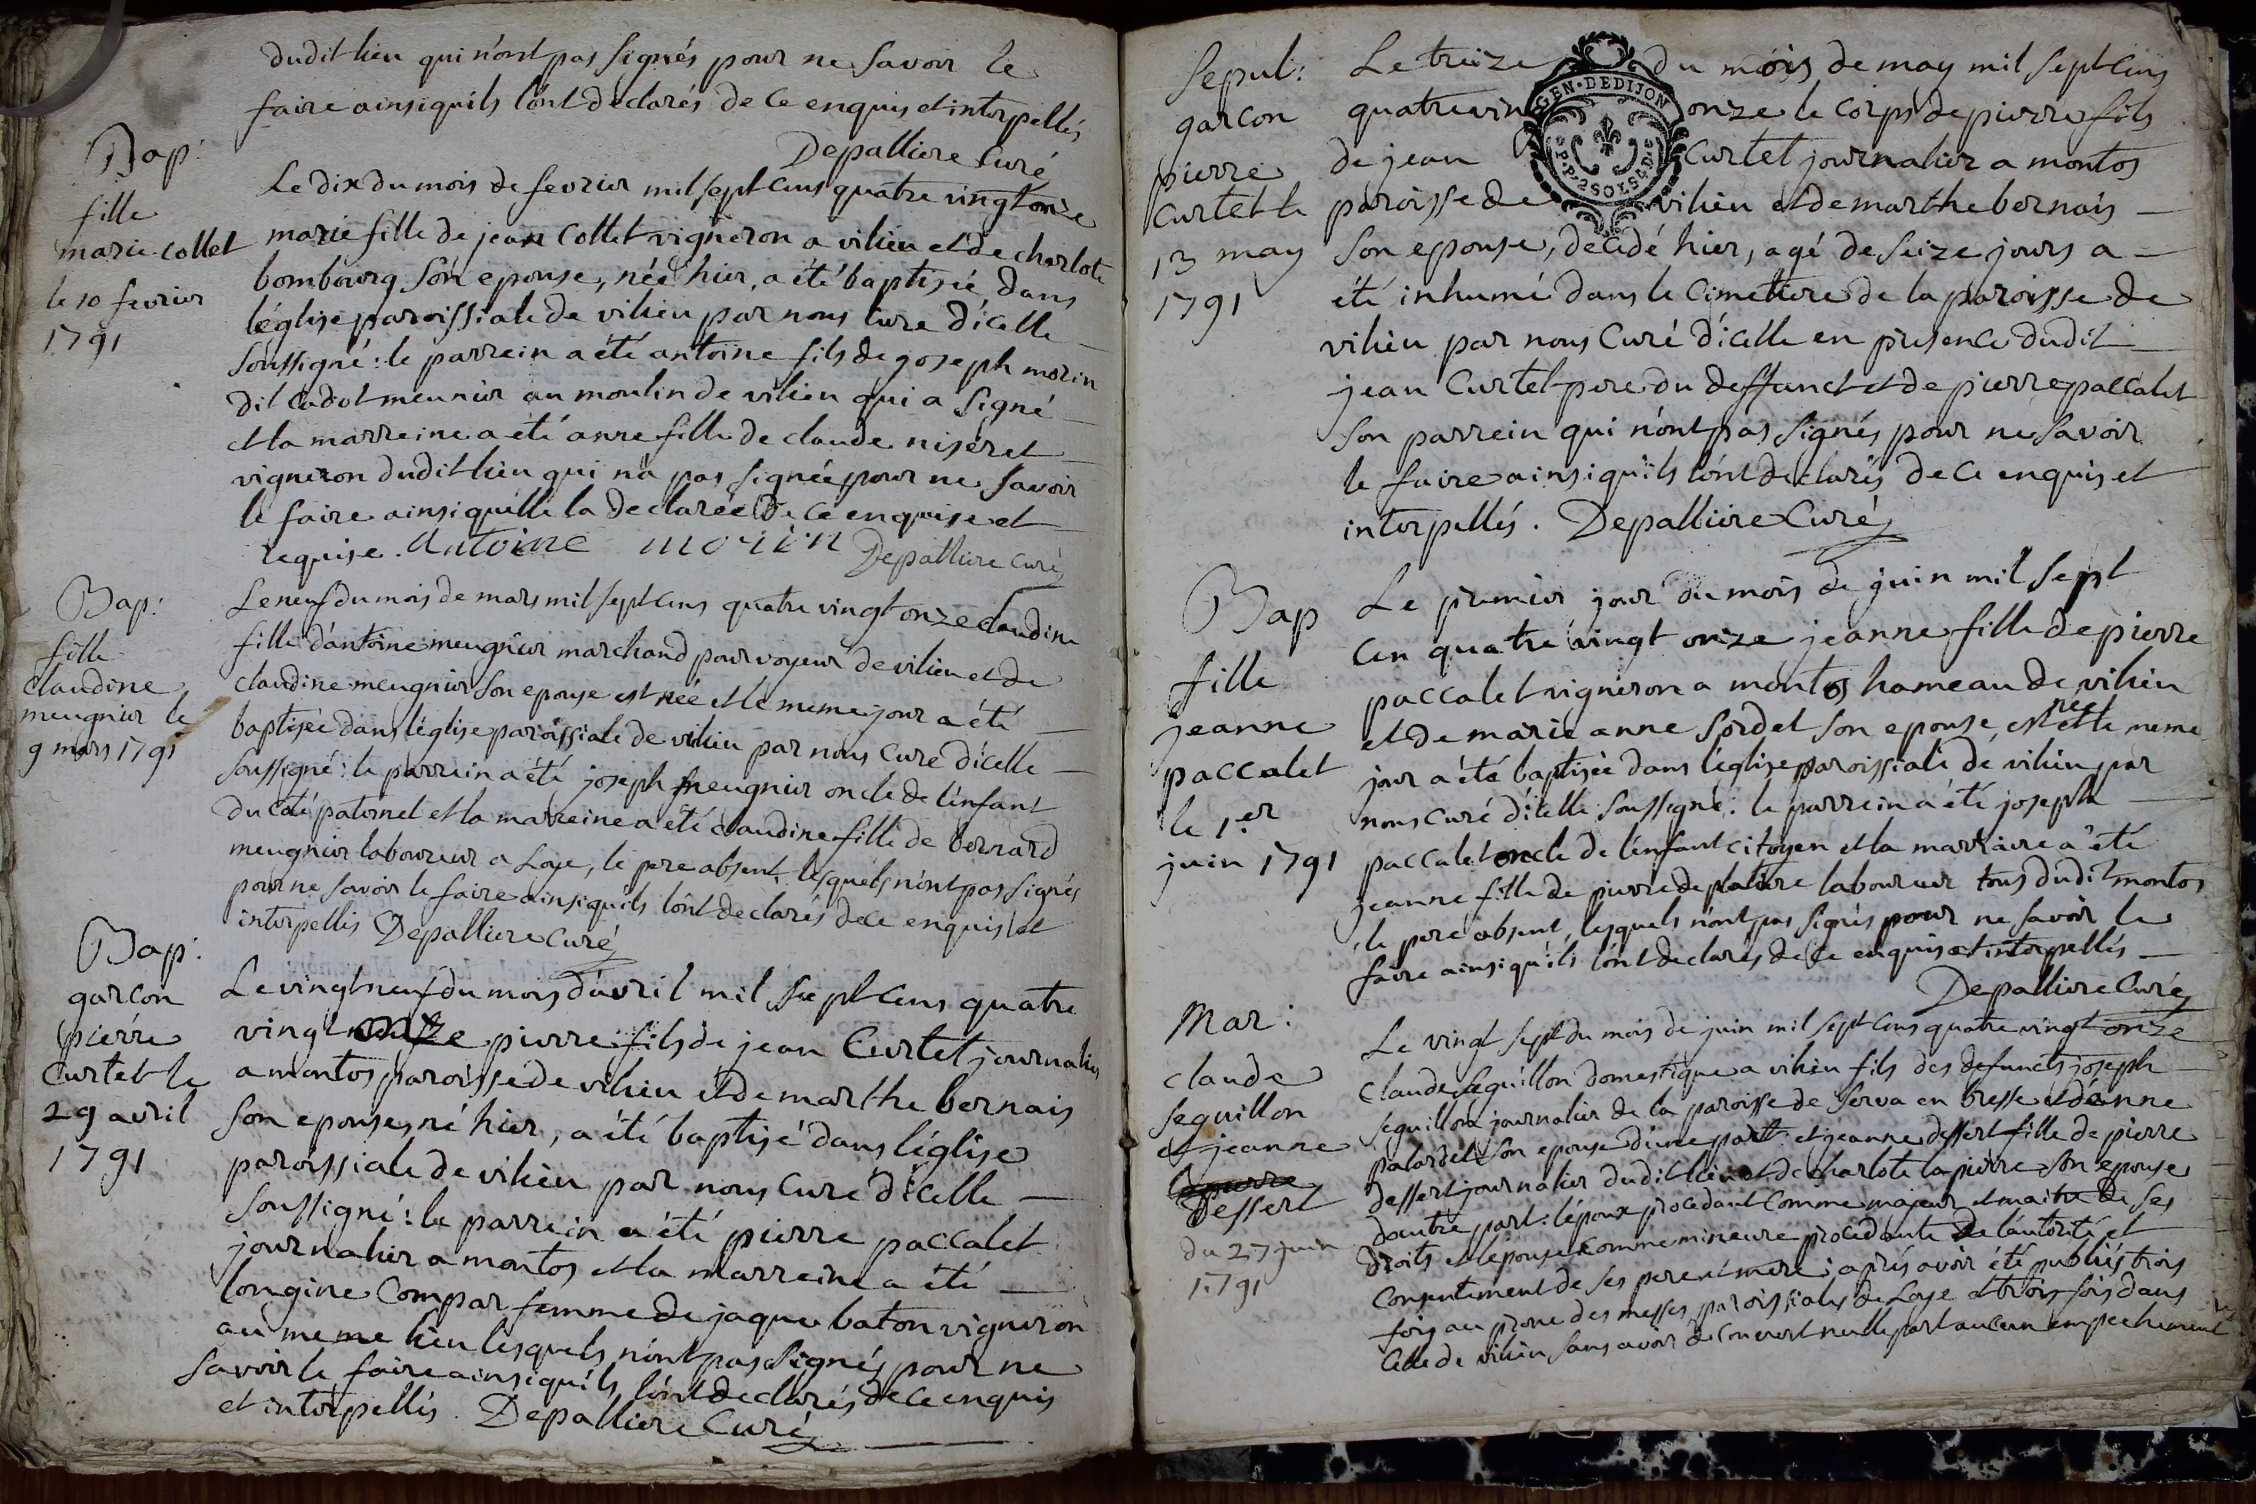 dudit lieu qui n'ont pas signés pour ne savoir le
faire ainsi quils l'ont declarés de ce enquis et interpellés
Depalliere Curé
Bap:
fille
marie collet
le 10 fevrier
1791
Le dix du mois de fevrier mil sept cens quatre vingt onze
marie fille de jean Collet vigneron a vilieu et de charlote
bombourg son epouse, née hier, a été baptisée dans
léglise paroissiale de vilieu par nous Curé dicelle
soussigné: le parrein a été antoine fils de joseph morin
dit cadot meunier au moulin de vilieu qui a signé
et la marreine a été anne fille de claude niseret
vigneron dudit lieu qui na pas signée pour ne savoir
le faire ainsi quelle la declarée de ce enquise et
requise. antoine morin Depalliere Curé
Bap:
fille
claudine
meugnier le
9 mars 1791
Le neuf du mois de mars mil sept cens quatre vingt onze claudine
fille d'antoine meugnier marchand pourvoyeur de vilieu et de
claudine meugnier son epouse est née et le meme jour a été
baptisée dans léglise paroissiale de vilieu par nous Curé dicelle
soussigné: le parrein a été joseph meugnier oncle de l'enfant
du coté paternel et la marreine a été claudine fille de bernard
meugnier laboureur a Loye, le pere absent, lesquels n'ont pas signés
pour ne savoir le faire ainsi quils l'ont declarés de ce enquis et
interpellés Depalliere Curé
Bap:
garcon
pierre
Curtet le
29 avril
1791
Le vingt neuf du mois d'avril mil sept cens quatre
vingt onze pierre fils de jean Curtet journalier
a montos paroisse de vilieu et de marthe bernais
son epouse, né hier, a été baptisé dans léglise
paroissiale de vilieu par nous Curé dicelle
soussigné: le parrein a été pierre paccalet
journalier a montos et la marreine a été
longine Compar femme de jaque baton vigneron
au meme lieu lesquels n'ont pas signés pour ne
savoir le faire ainsi quils l'ont declarés de ce enquis
et interpellés. Depalliere Curé
Sepul:
garcon
pierre
Curtet le
13 may
1791
GEN·DEDIJON
Le treize du mois de may mil sept cens
quatre vin onze le corps de pierre fils
de jean Curtet journalier a montos
paroisse de vilieu et de marthe bernais
son epouse, decidé hier, agé de seize jours a
été inhumé dans le Cimetiere de la paroisse de
vilieu par nous Curé dicelle en presence dudit
jean Curtet pere du deffunct et de pierre paccalet
son parrein qui n'ont pas signés pour ne savoir
le faire ainsi quils l'ont declarés de ce enquis et
interpellés. Depalliere Curé
Bap
fille
jeanne
paccalet
le 1.er
juin 1791
Le premier jour du mois de juin mil sept
cen quatre vingt onze jeanne fille de pierre
paccalet vigneron a montos hameau de vilieu
et de marie anne sordet son epouse, est née et le meme
jour a été baptisée dans léglise paroissiale de vilieu par
nous Curé dicelle soussigné: le parrein a été joseph
paccalet oncle de l'enfant citoyen et la marraire a été
jeanne fille de pierre depaliere laboureur tous dudit montos
le pere absent, lesquels n'ont pas signés pour ne savoir le
faire ainsi qu'ils l'ont declarés de ce enquis et interpellés
Depalliere Curé
Mar:
claude
seguillon
et jeanne
lapierre
Dessert
du 27 juin
1791
Le vingt sept du mois de juin mil sept cens quatre vingt onze
Claude seguillon domestique a vilieu fils des defuncts joseph
seguillon journalier de la paroisse de Serva en bresse et d'anne
palardel son epouse d'une part: et jeanne dessert fille de pierre
dessert journalier dudit lieu et de charlote lapierre son epouse
dautre part: lépoux procedant comme majeur et maitre de ses
droits et lépouse comme mineure procedante de l'autorité et
consentement de ses pere et mere; aprés avoir été publiés trois
fois au prone des messes paroissiales de Loye et trois fois dans
celle de vilieu sans avoir decouvert nulle part aucun empechement